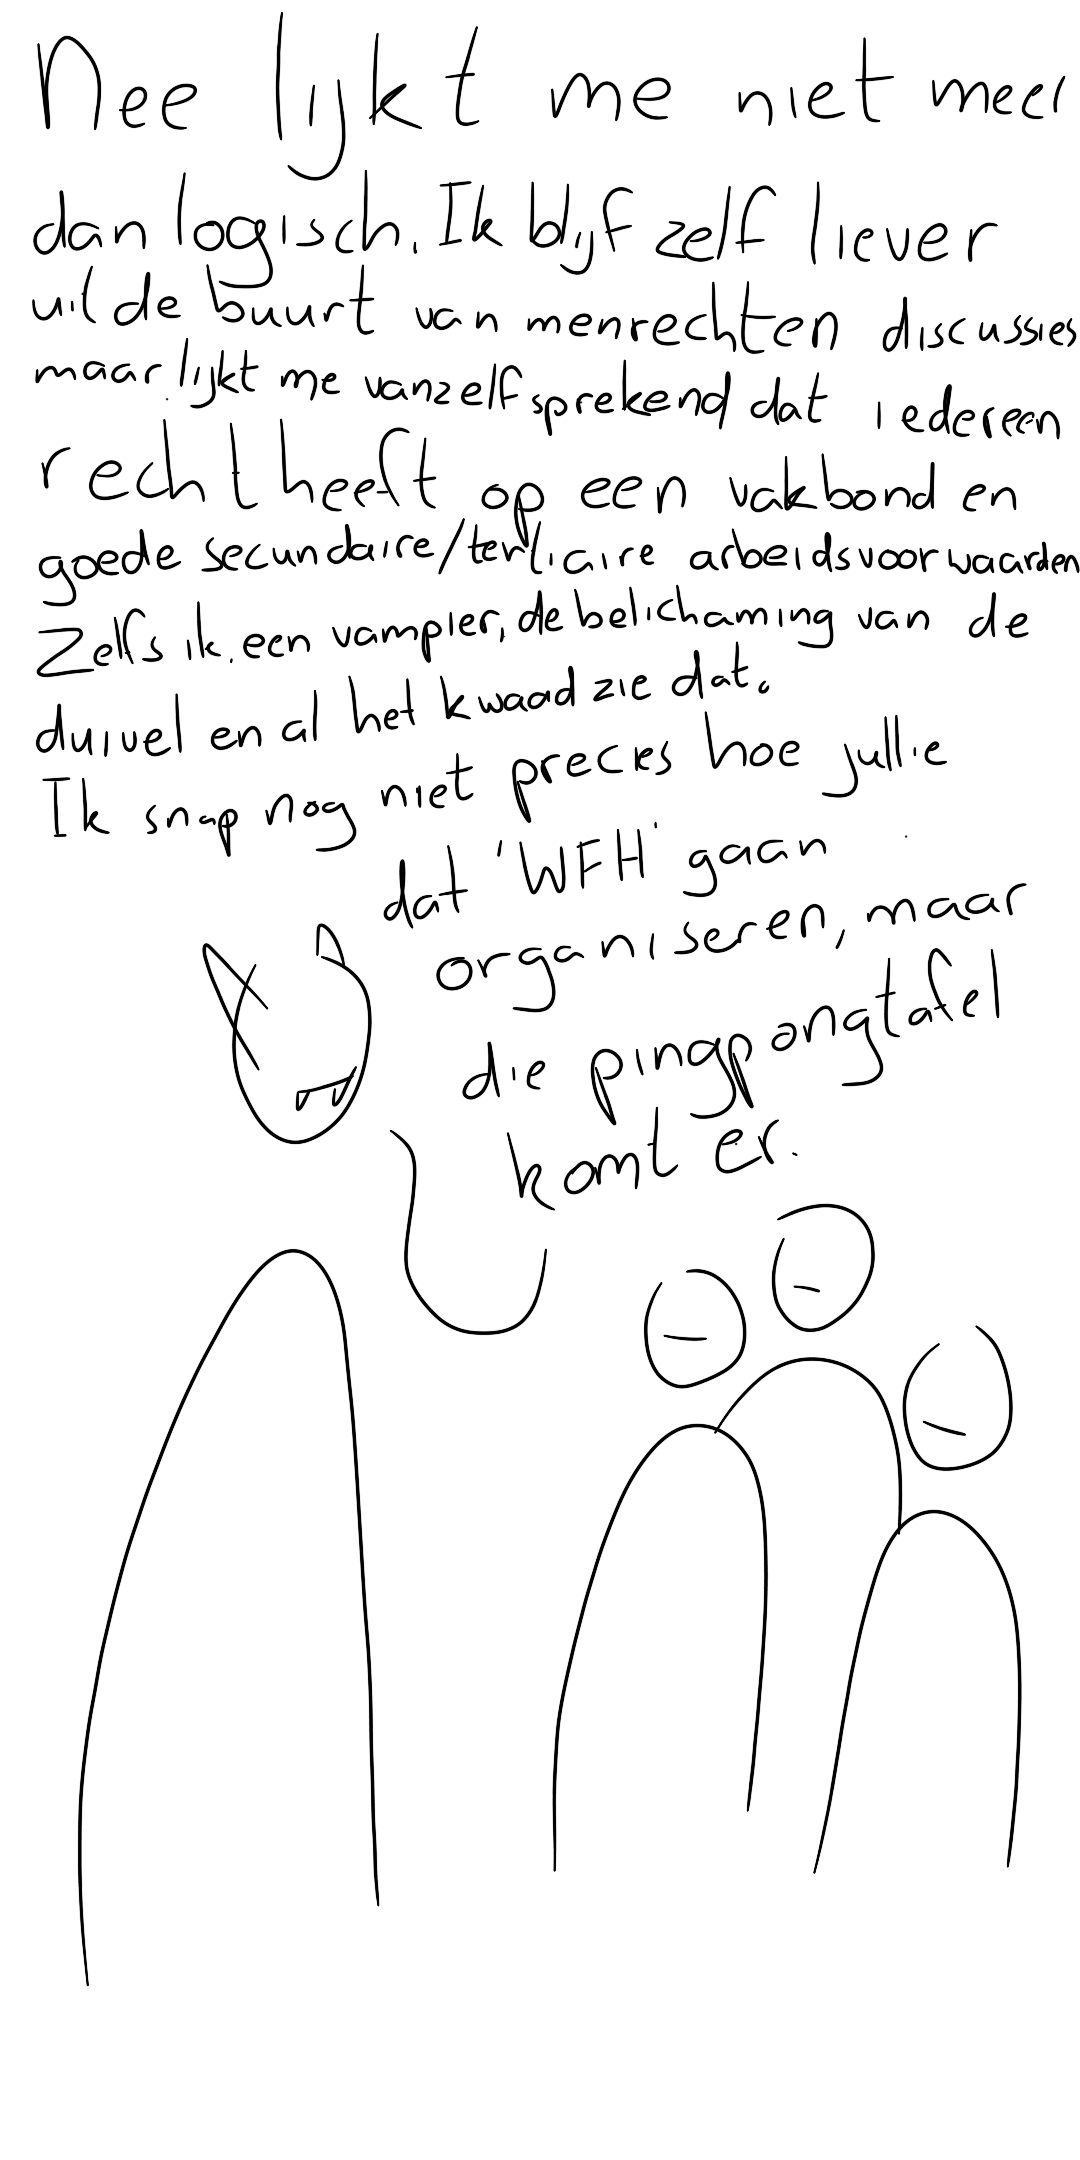 Nee lijkt me niet meer
dan logisch. Ik blijf zelf liever
uit de buurt van menrechten discussies
maar lijkt me vanzelfsprekend dat iedereen
recht heeft op een vakbond en
goede secundaire/tertiaire arbeidsvoorwaarden
Zelfs ik, een vampier, de belichaming van de
duivel en al het kwaad zie dat.
Ik snap nog niet precies hoe jullie
dat 'WFH' gaan
organiseren, maar
die pingpongtafel
komt er.